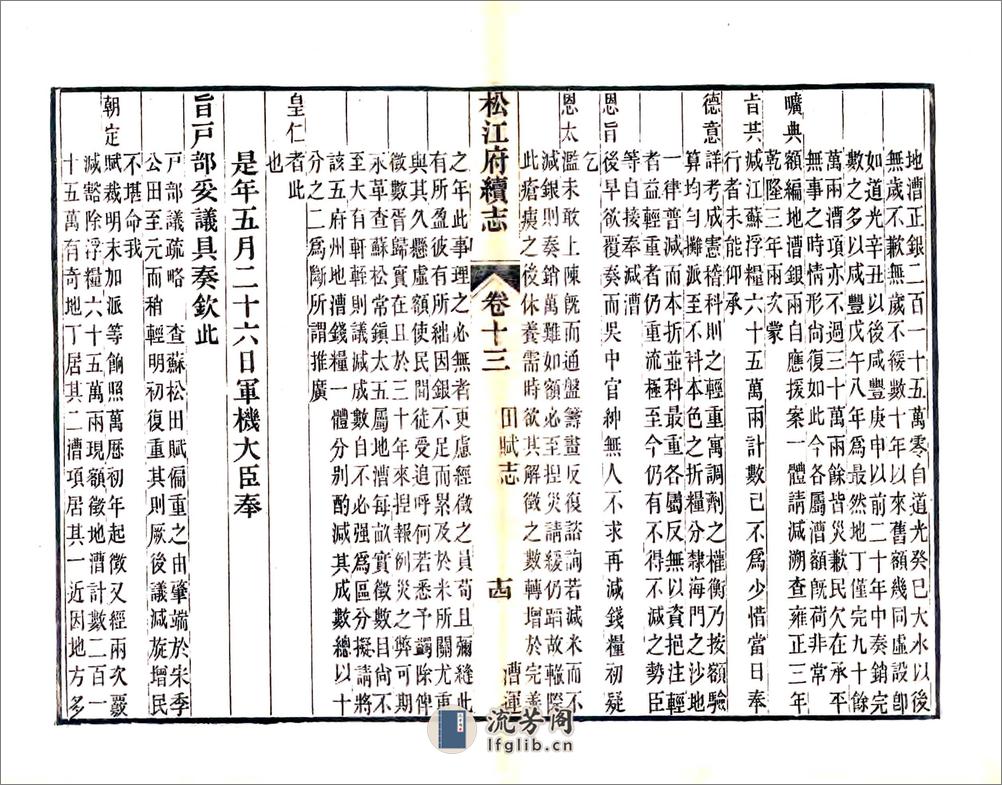 地漕正銀二百一十五萬零自道光癸巳大水以後
無歲不歉無歲不緩數十年以來舊額幾同虛設卽
如道光辛丑以後咸豐庚申以前二十年中奏銷完
數之多以咸豐戊午年八年爲最然地丁僅完九十餘
萬兩漕項亦不過三十萬兩餘皆災歉民欠在承平
無事之時情形尚復如此今各屬漕額旣荷非常
曠典額編地漕銀兩自應援案一體請減溯查雍正三年
乾隆三年兩次蒙
旨共減江蘇浮糧六十五萬兩計數已不爲少惜當日奉
行者未能仰承
德意詳考成憲稽科則之輕重寓調劑之權衡乃按額驗
算均勻攤派所減本色之折科糧分隸海門之沙地
一律普減而本折並科最重各屬反無以資挹注輕
者益輕重者仍重流極至今仍有不得不減之勢臣
等自接奉減漕
恩旨後早欲覆奏而吳中官紳無人不求再減錢糧初疑
乞
恩太濫未敢上陳旣而通盤籌畫反復諮詢若減米而不
減銀則奏銷萬難如額必至捏災請緩仍蹈故轍際
此瘡痍之後休養需時欲其解徵之數轉增於完善
松江府續志 卷十三 田賦志 漕運 十四
之年此事理之必無者更慮經徵之員苟且彌縫此
有所盈彼有所絀因銀不足而累及於米所關尤重
與其久懸虛額使民間徒受追呼何若悉予蠲除俾
徵數胥歸實在且於三十年來捏報例災之弊可期
永革查蘇松常鎭太五屬地漕每畝實徵數目尚不
至大有軒輊則議減成數自不必強爲區分擬請將
該五府州地漕錢糧一體分别酌減其成數總以十
分之二爲斷所謂推廣
皇仁者此
也
是年五月二十六日軍機大臣奉
旨戸部妥議具奏欽此
戸部議疏略 查蘇松田賦偏重之由肇端於宋季
公田至元而稍輕明初復重其則厥後議減旋增民
不堪命我
朝定賦裁明末加派等餉照萬厯初年起徵又經兩次覈
減豁除浮糧六十五萬兩現額徵地漕計數二百一
十五萬有奇地丁居其二漕項居其一近因地方多
流芳阁
lfglib.cn